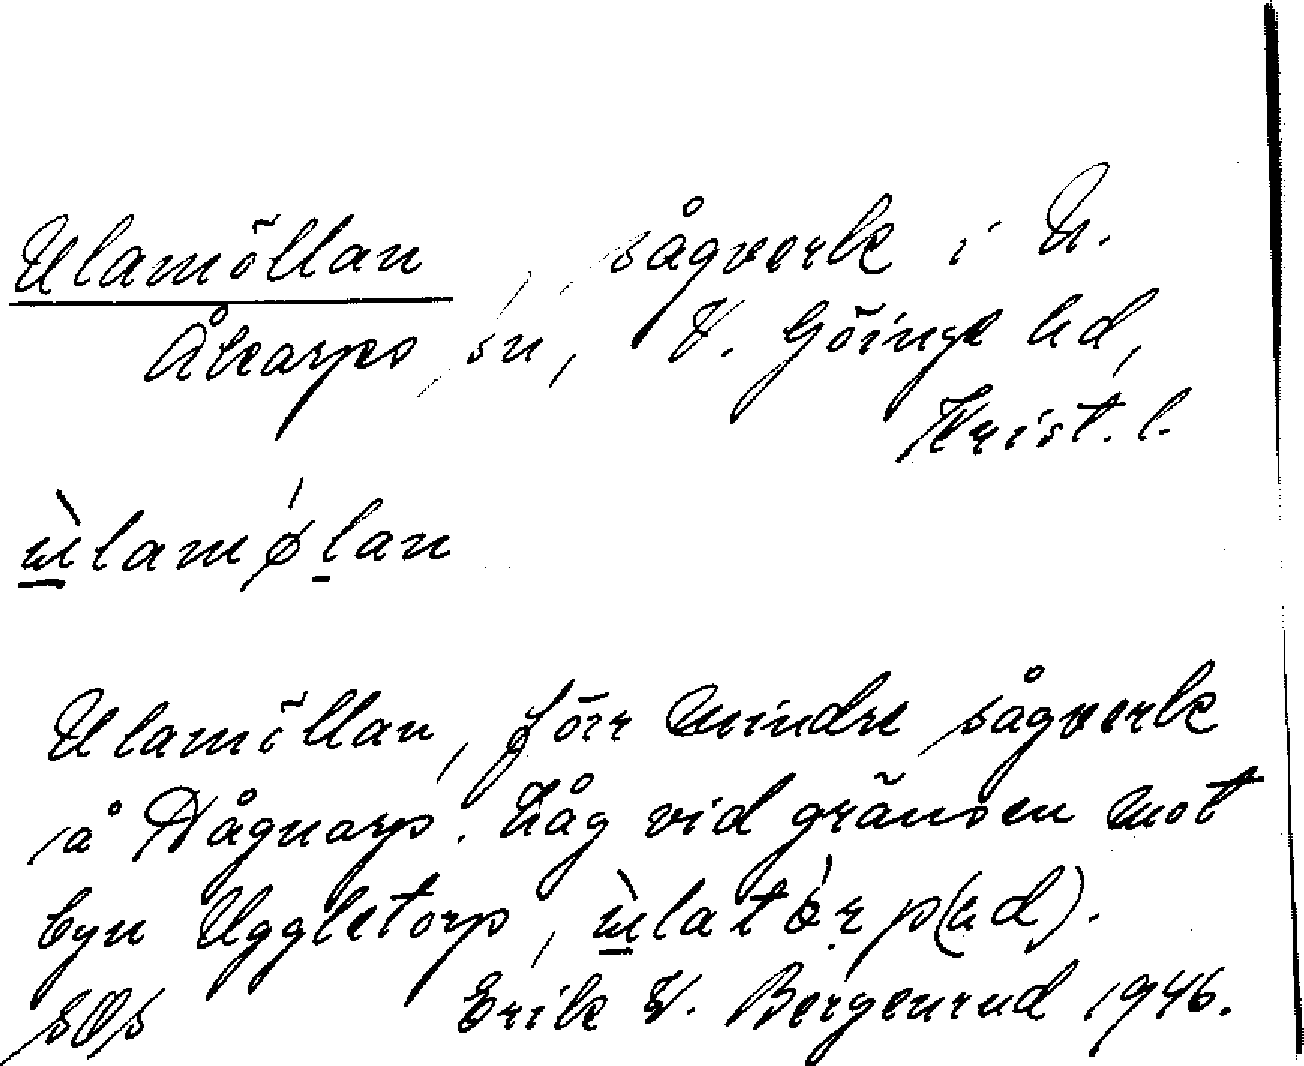 Ulamöllan, sågverk i N.
Åkarps sn, V. Göinge hd,
Krist. l.
ùlamǿlan
Ulamöllan, förr mindre sågverk
å Hågnarp. Låg vid gränsen mot
byn Uggletorp, ùlatɔ́rp(hd).
Erik W. Bergenrud 1946.